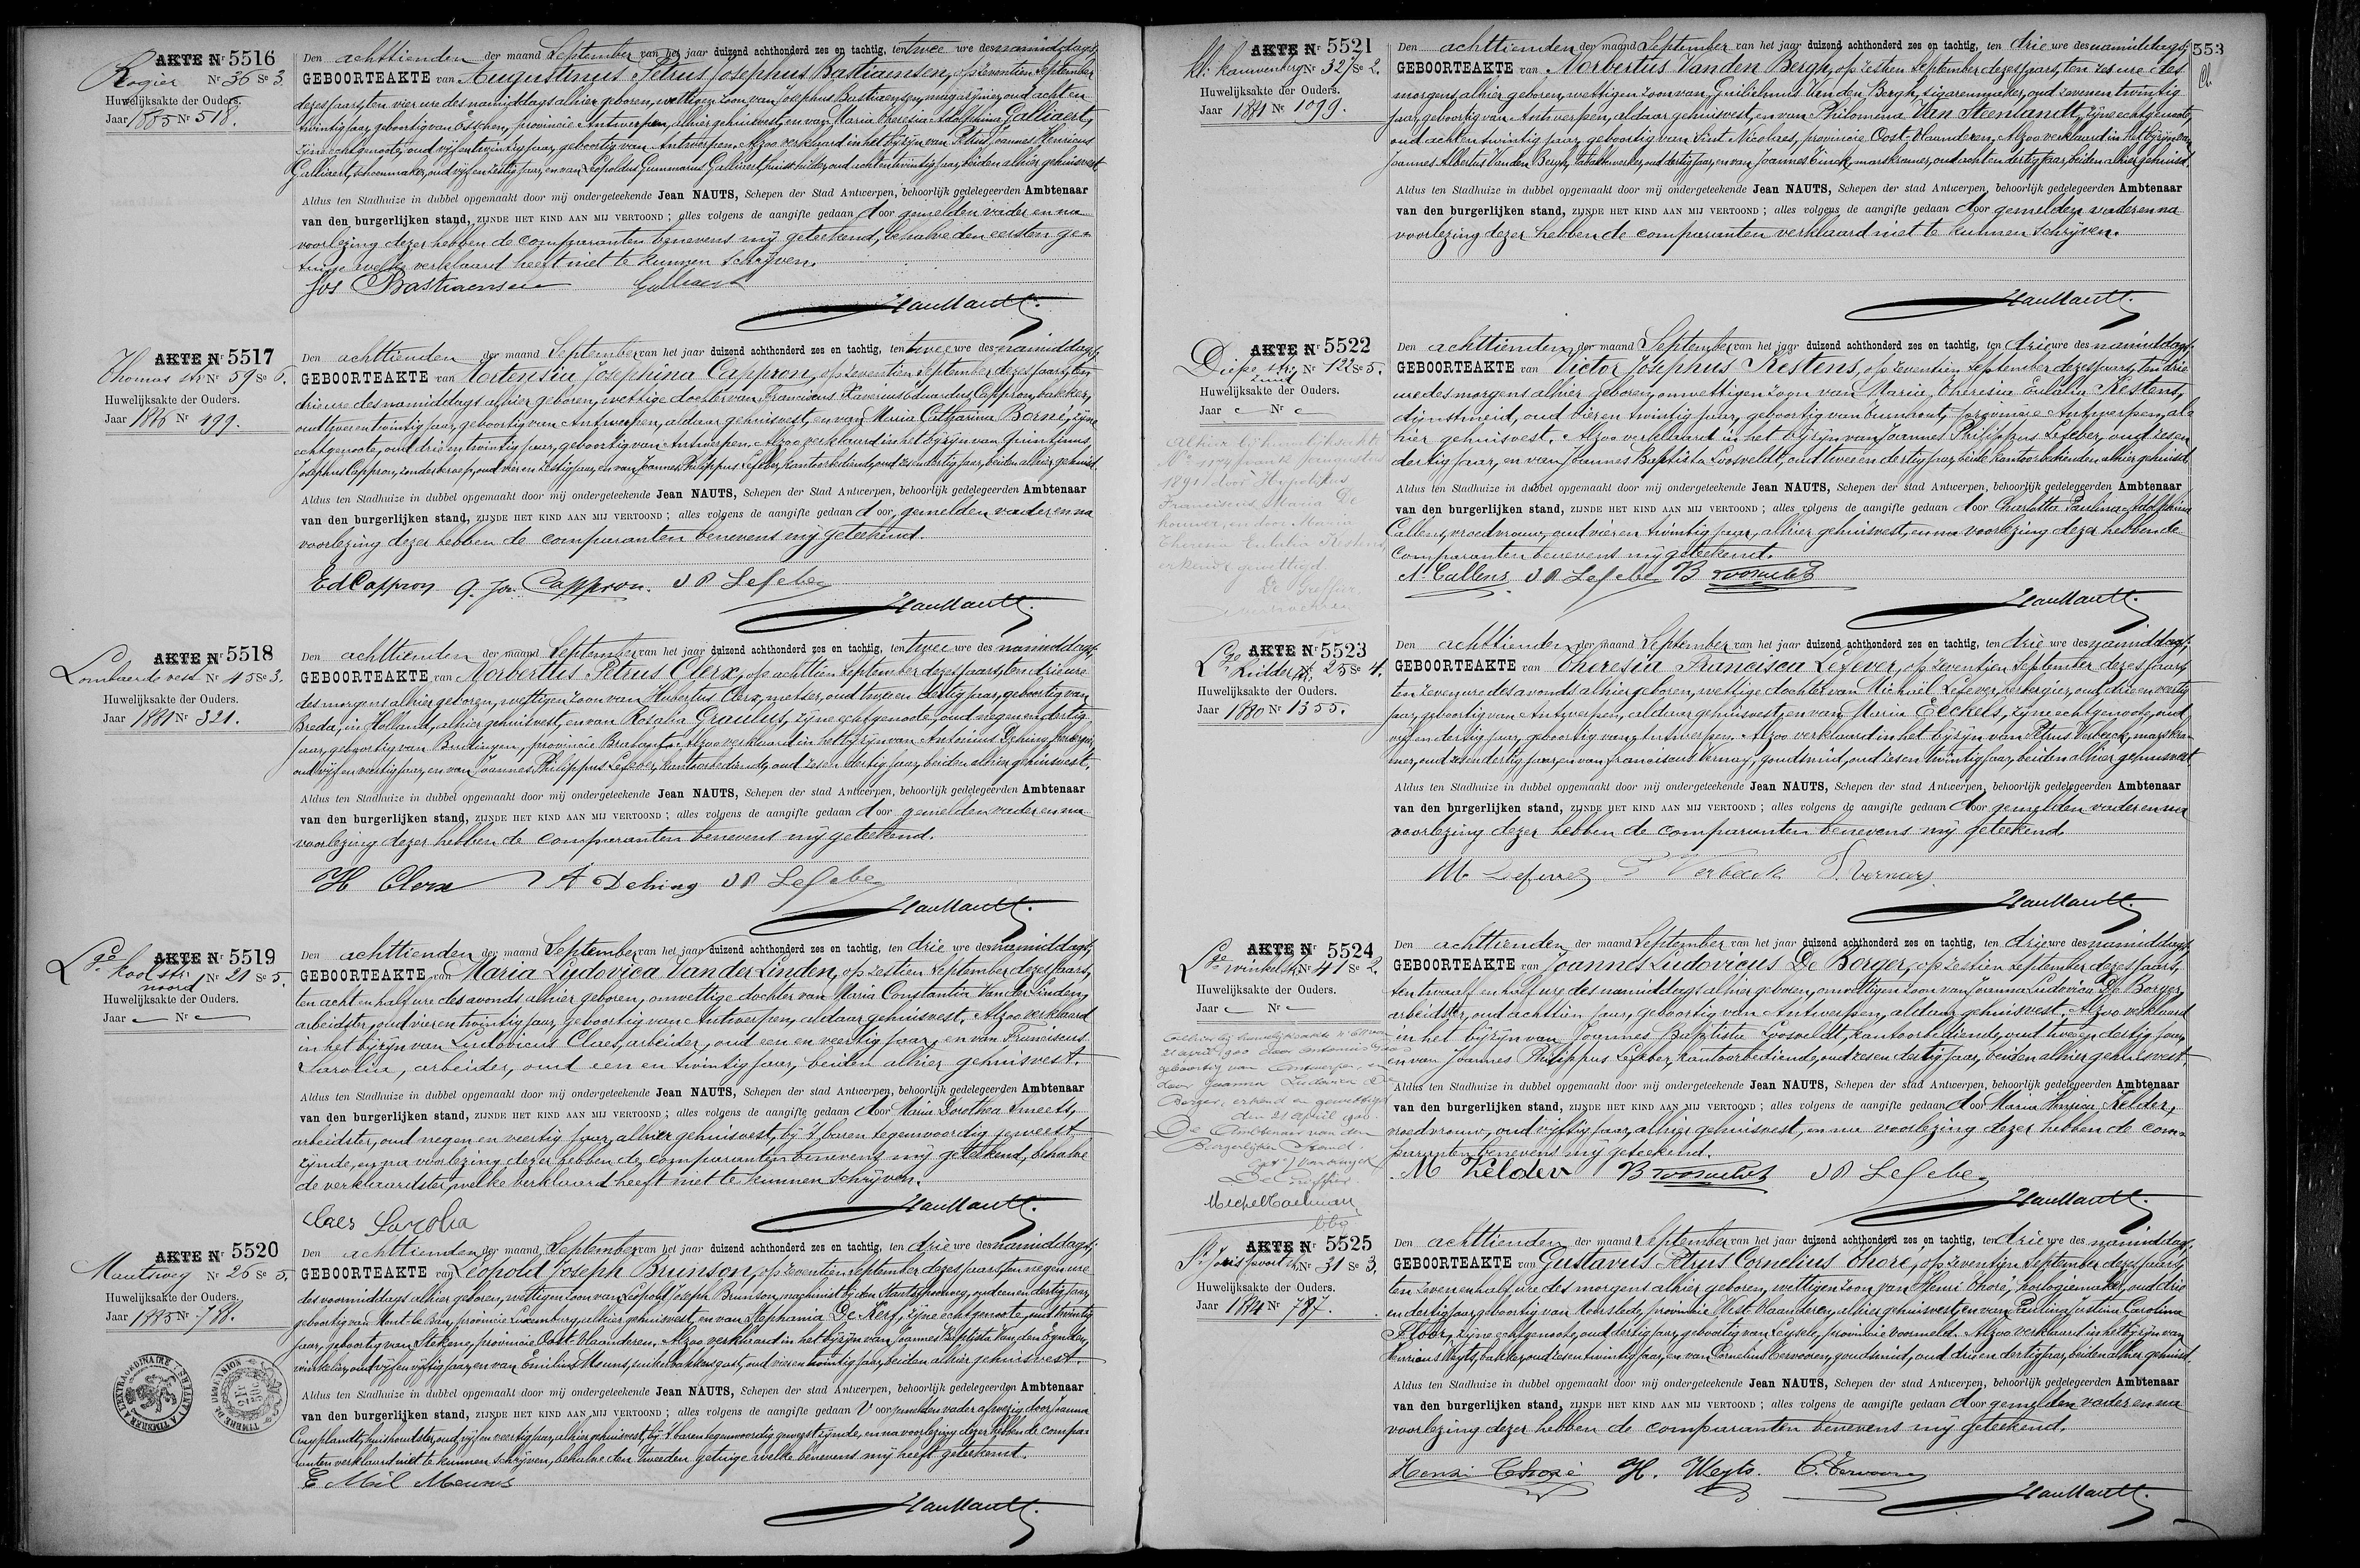 AKTE Nr 5516
Rogier Nr 36 Se 3.
Huwelijksakte der Ouders.
Jaar 1885 Nr 518.
Den achttienden der maand September van het jaar duizend achthonderd zes en tachtig, ten twee ure des namiddags,
GEBOORTEAKTE van Augustinus Petrus Josephus Bastiaensen, op zeventien September
dezes jaars, ten vier ure des namiddags alhier geboren, wettigen zoon van Josephus Bastiaensen, magazijnier, oud acht en
twintig jaar, geboortig van Esschen, provincie Antwerpen, alhier gehuisvest, en van Maria Theresia Adolphina Galliaert,
zijne echtgenoote, oud vijf en twintig jaar, geboortig van Antwerpen. Alzoo verklaard in het bijzijn van Petrus Joannes Henricus
Galliaert, schoenmaker, oud vijf en zestig jaar, en van Leopoldus Gummarus Galliaert, huisschilder, oud acht en twintig jaar, beiden alhier gehuisvest.
Aldus ten Stadhuize in dubbel opgemaakt door mij ondergeteekende Jean NAUTS, Schepen der Stad Antwerpen, behoorlijk gedelegeerden Ambtenaar
van den burgerlijken stand, ZIJNDE HET KIND AAN MIJ VERTOOND; alles volgens de aangifte gedaan door gemelden vader en na
voorlezing dezer hebben de comparanten benevens mij geteekend, behalve den eersten ge-
tuige welke verklaard heeft niet te kunnen schrijven.
Jos Bastiaensen Galliaert
Jean Nauts
AKTE Nr 5517
Thomas str Nr 59 Se 6.
Huwelijksakte der Ouders.
Jaar 1886 Nr 499.
Den achttienden der maand September van het jaar duizend achthonderd zes en tachtig, ten twee ure des namiddags,
GEBOORTEAKTE van Hortensia Josephina Cappron, op zeventien September dezes jaars, ten
drie ure des namiddags alhier geboren, wettige dochter van Franciscus Xaverius Eduardus Cappron, bakker,
oud twee en twintig jaar, geboortig van Antwerpen, aldaar gehuisvest, en van Maria Catharina Borné, zijne
echtgenoote, oud drie en twintig jaar, geboortig van Antwerpen. Alzoo verklaard in het bijzijn van Quintinus
Josephus Cappron, zonder beroep, oud vier en zestig jaar, en van Joannes Philippus Lefeber, kantoorbediende, oud zes en dertig jaar, beiden alhier gehuisd.
Aldus ten Stadhuize in dubbel opgemaakt door mij ondergeteekende Jean NAUTS, Schepen der Stad Antwerpen, behoorlijk gedelegeerden Ambtenaar
van den burgerlijken stand, ZIJNDE HET KIND AAN MIJ VERTOOND; alles volgens de aangifte gedaan door gemelden vader en na
voorlezing dezer hebben de comparanten benevens mij geteekend.
Ed Cappron Q. Jos. Cappron. J P Lefeber
Jean Nauts
AKTE Nr 5518
Lombaerde vest Nr 45 Se 3.
Huwelijksakte der Ouders.
Jaar 1881 Nr 321.
Den achttienden der maand September van het jaar duizend achthonderd zes en tachtig, ten twee ure des namiddags,
GEBOORTEAKTE van Norbertus Petrus Clerx, op achttien September dezes jaars, ten drie ure
des morgens alhier geboren, wettigen zoon van Hubertus Clerx, metser, oud twee en dertig jaar, geboortig van
Breda, in Holland, alhier gehuisvest, en van Rosalia Graulus, zijne echtgenoote, oud negen en dertig
jaar, geboortig van Budingen, provincie Brabant. Alzoo verklaard in het bijzijn van Antonius Dehing, herbergier,
oud vijf en veertig jaar, en van Joannes Philippus Lefeber, kantoorbediende, oud zes en dertig jaar, beiden alhier gehuisvest.
Aldus ten Stadhuize in dubbel opgemaakt door mij ondergeteekende Jean NAUTS, Schepen der stad Antwerpen, behoorlijk gedelegeerden Ambtenaar
van den burgerlijken stand, ZIJNDE HET KIND AAN MIJ VERTOOND; alles volgens de aangifte gedaan door gemelden vader en na
voorlezing dezer hebben de comparanten benevens mij geteekend.
H Clerx A Dehing J P Lefeber
Jean Nauts
AKTE Nr 5519
Lge kool str noord Nr 21 Se 5.
Huwelijksakte der Ouders.
Jaar — Nr —
Den achttienden der maand September van het jaar duizend achthonderd zes en tachtig, ten drie ure des namiddags,
GEBOORTEAKTE van Maria Ludovica Van der Linden, op zestien September dezes jaars,
ten acht en half ure des avonds alhier geboren, onwettige dochter van Maria Constantia Van der Linden,
arbeidster, oud vier en twintig jaar, geboortig van Antwerpen, aldaar gehuisvest. Alzoo verklaard
in het bijzijn van Ludovicus Claes, arbeider, oud een en veertig jaar, en van Franciscus
Sarolia, arbeider, oud een en twintig jaar, beiden alhier gehuisvest.
Aldus ten Stadhuize in dubbel opgemaakt door mij ondergeteekende Jean NAUTS, Schepen der stad Antwerpen, behoorlijk gedelegeerden Ambtenaar
van den burgerlijken stand, ZIJNDE HET KIND AAN MIJ VERTOOND; alles volgens de aangifte gedaan door Maria Dorothea Smeets,
arbeidster, oud negen en veertig jaar, alhier gehuisvest, bij 't baren tegenwoordig geweest
zijnde, en na voorlezing dezer hebben de comparanten benevens mij geteekend, behalve
de verklaardster, welke verklaard heeft niet te kunnen schrijven.
Claes Sarolia
Jean Nauts
AKTE Nr 5520
Mautsweg Nr 26 Se 5.
Huwelijksakte der Ouders.
Jaar 1885 Nr 788.
Den achttienden der maand September van het jaar duizend achthonderd zes en tachtig, ten drie ure des namiddags,
GEBOORTEAKTE van Leopold Joseph Brunson, op zeventien September dezes jaars, ten negen ure
des voormiddags alhier geboren, wettigen zoon van Leopold Joseph Brunson, machinist bij den Staatsspoorweg, oud een en dertig jaar,
geboortig van Mont-le-Ban, provincie Luxemburg, alhier gehuisvest, en van Stephania De Kerf, zijne echtgenoote, oud twintig
jaar, geboortig van Stekene, provincie Oost-Vlaanderen. Alzoo verklaard in het bijzijn van Joannes Baptista Van den Eynden,
winkelier, oud vijf en vijftig jaar, en van Emilius Meuns, suikerbakkersgast, oud vier en twintig jaar, beiden alhier gehuisvest.
Aldus ten Stadhuize in dubbel opgemaakt door mij ondergeteekende Jean NAUTS, Schepen der stad Antwerpen, behoorlijk gedelegeerden Ambtenaar
van den burgerlijken stand, ZIJNDE HET KIND AAN MIJ VERTOOND; alles volgens de aangifte gedaan Voor gemelden vader afwezig door Joanna
Cruyplandt, huishoudster, oud vijf en veertig jaar, alhier gehuisvest, bij 't baren tegenwoordig geweest zijnde, en na voorlezing dezer hebben de compa-
ranten verklaard niet te kunnen schrijven, behalve den tweeden getuige welke benevens mij heeft geteekend.
E Mil Meuns
Jean Nauts
TIMBRE DE DIMENSION
553
AKTE Nr 5521
kl: kauwenberg Nr 327 Se 2.
Huwelijksakte der Ouders.
Jaar 1881 Nr 1099.
Den achttienden der maand September van het jaar duizend achthonderd zes en tachtig, ten drie ure des namiddags,
GEBOORTEAKTE van Norbertus Vanden Bergh, op zestien September dezes jaars, ten zes ure des
morgens, alhier geboren, wettigen zoon van Guilielmus Vanden Bergh, sigarenmaker, oud zeven en twintig
jaar, geboortig van Antwerpen, aldaar gehuisvest, en van Philomena Van Steenlandt, zijne echtgenoote,
oud acht en twintig jaar, geboortig van Sint Nicolaes, provincie Oost-Vlaanderen. Alzoo verklaard in het bijzijn van
Joannes Albertus Vanden Bergh, tabakbewerker, oud dertig jaar, en van Joannes Einck, marskramer, oud acht en dertig jaar, beiden alhier gehuisd.
Aldus ten Stadhuize in dubbel opgemaakt door mij ondergeteekende Jean NAUTS, Schepen der stad Antwerpen, behoorlijk gedelegeerden Ambtenaar
van den burgerlijken stand, ZIJNDE HET KIND AAN MIJ VERTOOND; alles volgens de aangifte gedaan door gemelden vader en na
voorlezing dezer hebben de comparanten verklaard niet te kunnen schrijven.
Jean Nauts
AKTE Nr 5522
Diepe str zuid Nr 122 Se 5.
Huwelijksakte der Ouders.
Jaar — Nr —
Alhier bij huwelijksakte
1891 door Hypolitus
Franciscus Maria De
en door Maria
Theresia Eulalia Kestens
erkend & gewettigd
De Greffier,
Den achttienden der maand September van het jaar duizend achthonderd zes en tachtig, ten drie ure des namiddags,
GEBOORTEAKTE van Victor Josephus Kestens, op zeventien September dezes jaars, ten drie
ure des morgens alhier geboren, onwettigen zoon van Maria Theresia Eulalia Kestens,
dienstmeid, oud vier en twintig jaar, geboortig van Turnhout, provincie Antwerpen, al-
hier gehuisvest. Alzoo verklaard in het bijzijn van Joannes Philippus Lefeber, oud zes en
dertig jaar, en van Joannes Baptista Loosveldt, oud twee en dertig jaar, beide kantoorbedienden alhier gehuisd.
Aldus ten Stadhuize in dubbel opgemaakt door mij ondergeteekende Jean NAUTS, Schepen der stad Antwerpen, behoorlijk gedelegeerden Ambtenaar
van den burgerlijken stand, ZIJNDE HET KIND AAN MIJ VERTOOND; alles volgens de aangifte gedaan door Charlotta Paulina Adolphina
Callens, vroedvrouw, oud vier en twintig jaar, alhier gehuisvest, en na voorlezing dezer hebben de
comparanten benevens mij geteekend.
A. Callens J P Lefeber B Loosveldt
Jean Nauts
AKTE Nr 5523
Lge Ridder str Nr 25 Se 4.
Huwelijksakte der Ouders.
Jaar 1880 Nr 1355.
Den achttienden der maand September van het jaar duizend achthonderd zes en tachtig, ten drie ure des namiddags,
GEBOORTEAKTE van Theresia Francisca Lefever, op zeventien September dezes jaars,
ten zeven ure des avonds alhier geboren, wettige dochter van Michaël Lefever, herbergier, oud drie en veertig
jaar, geboortig van Antwerpen, aldaar gehuisvest, en van Maria Eeckels, zijne echtgenoote, oud
vijf en dertig jaar, geboortig van Antwerpen. Alzoo verklaard in het bijzijn van Petrus Verbeeck, marskra-
mer, oud zes en dertig jaar, en van Franciscus Vernay, goudsmid, oud zes en twintig jaar, beiden alhier gehuisvest.
Aldus ten Stadhuize in dubbel opgemaakt door mij ondergeteekende Jean NAUTS, Schepen der stad Antwerpen, behoorlijk gedelegeerden Ambtenaar
van den burgerlijken stand, ZIJNDE HET KIND AAN MIJ VERTOOND; alles volgens de aangifte gedaan door gemelden vader en na
voorlezing dezer hebben de comparanten benevens mij geteekend.
M Lefever P Verbeeck F. Vernay
Jean Nauts
AKTE Nr 5524
Lge winkel str Nr 41 Se 2.
Huwelijksakte der Ouders.
Jaar — Nr —
Alhier bij huwelijksakte
21 april 1900 door Antonius
geboortig van Antwerpen, en
door Joanna Ludovica De
Borger, erkend en gewettigd
den 21 April 1900.
De Ambtenaar van den
Burgerlijken Stand
De Greffier
Den achttienden der maand September van het jaar duizend achthonderd zes en tachtig, ten drie ure des namiddags,
GEBOORTEAKTE van Joannes Ludovicus De Borger, op zestien September dezes jaars,
ten twaalf en half ure des namiddags alhier geboren, onwettigen zoon van Joanna Ludovica De Borger,
arbeidster, oud achttien jaar, geboortig van Antwerpen, aldaar gehuisvest. Alzoo verklaard
in het bijzijn van Joannes Baptista Loosveldt, kantoorbediende, oud twee en dertig jaar,
en van Joannes Philippus Lefeber, kantoorbediende, oud zes en dertig jaar, beiden alhier gehuisvest.
Aldus ten Stadhuize in dubbel opgemaakt door mij ondergeteekende Jean NAUTS, Schepen der stad Antwerpen, behoorlijk gedelegeerden Ambtenaar
van den burgerlijken stand, ZIJNDE HET KIND AAN MIJ VERTOOND; alles volgens de aangifte gedaan door Maria Henrica Kelder,
vroedvrouw, oud vijftig jaar, alhier gehuisvest, en na voorlezing dezer hebben de com-
paranten benevens mij geteekend.
M Kelder B Loosveldt J P Lefeber
Jean Nauts
AKTE Nr 5525
St Joris poort str Nr 31 Se 3.
Huwelijksakte der Ouders.
Jaar 1884 Nr 787.
Den achttienden der maand September van het jaar duizend achthonderd zes en tachtig, ten drie ure des namiddags,
GEBOORTEAKTE van Gustavus Petrus Cornelius Choré, op zeventien September dezes jaars,
ten zeven en half ure des morgens alhier geboren, wettigen zoon van Henri Choré, horlogiemaker, oud drie
en dertig jaar, geboortig van Moorslede, provincie West-Vlaanderen, alhier gehuisvest, en van Paulina Justina Carolina
Floor, zijne echtgenoote, oud dertig jaar, geboortig van Leysele, provincie voormeld. Alzoo verklaard in het bijzijn van
Henricus Weyts, bakker, oud zes en twintig jaar, en van Cornelius Vervooren, goudsmid, oud drie en dertig jaar, beiden alhier gehuisd.
Aldus ten Stadhuize in dubbel opgemaakt door mij ondergeteekende Jean NAUTS, Schepen der stad Antwerpen, behoorlijk gedelegeerden Ambtenaar
van den burgerlijken stand, ZIJNDE HET KIND AAN MIJ VERTOOND; alles volgens de aangifte gedaan door gemelden vader en na
voorlezing dezer hebben de comparanten benevens mij geteekend.
Henri Choré H. Weyts. C. Vervooren
Jean Nauts